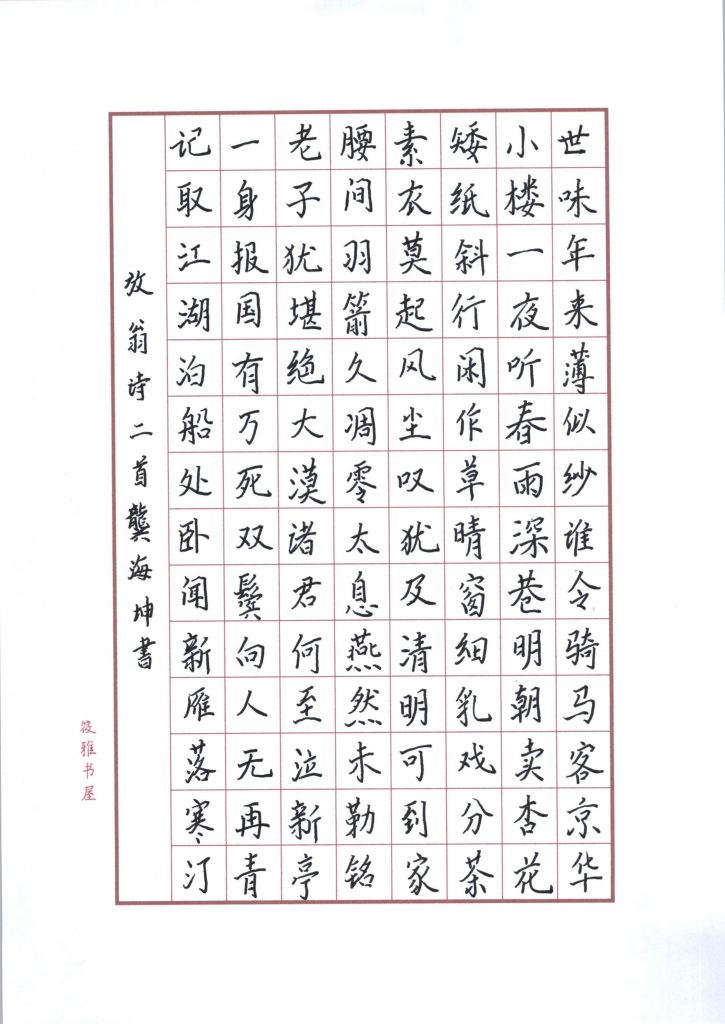 世味年来薄似纱谁令骑马客京华
小楼一夜听春雨深巷明朝卖杏花
矮纸斜行闲作草晴窗细乳戏分茶
素衣莫起风尘叹犹及清明可到家
腰间羽箭久凋零太息燕然未勒铭
老子犹堪绝大漠诸君何至泣新亭
一身报国有万死双鬓向人无再青
记取江湖泊船处卧闻新雁落寒汀
放翁诗二首龚海坤书
筱雅书屋